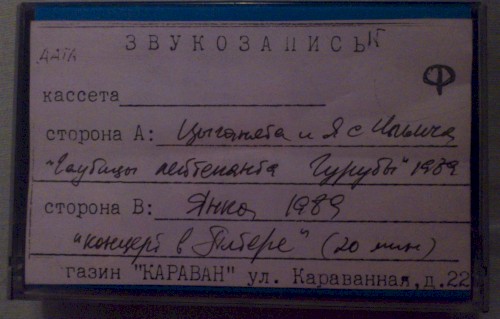 ЗВУКОЗАПИСЬ
ДАТА
Ф
кассета
сторона А: Цыганята и Я с Ильича
"Гаубицы лейтенанта Гурубы" 1989
сторона В: Янка 1989
"концерт в Питере" (20 мин)
газин "КАРАВАН" ул. Караванная, д.22